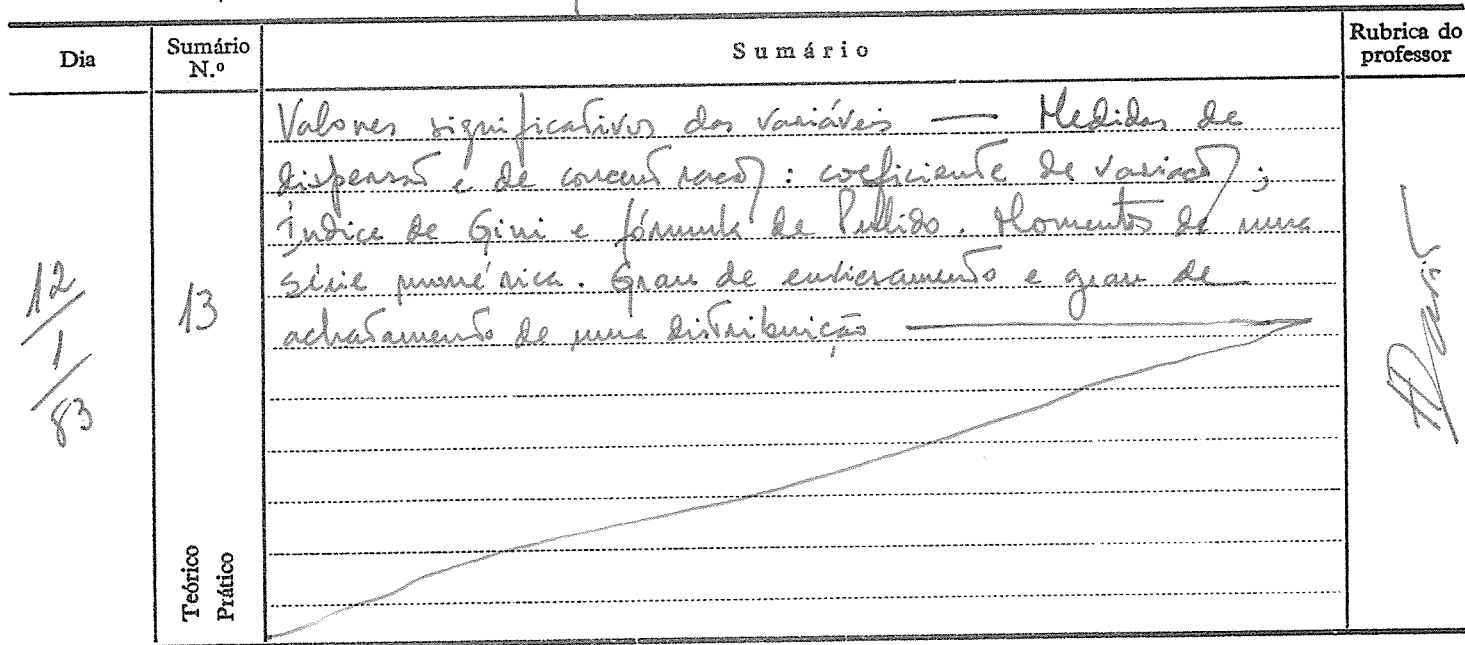 Dia
Sumário N.º
Sumário
Rubrica do professor
12/1/83
13
Valores significativos das variáveis — Medidas de
dispersão e de concentração: coeficiente de variação;
Índice de Gini e fórmula de Pulido. Momentos de uma
série numérica. Grau de enviesamento e grau de
achatamento de uma distribuição
Teórico
Prático